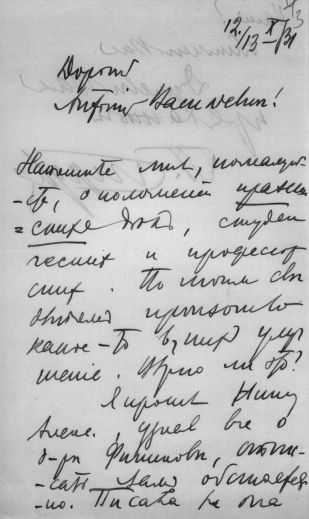 12/13 X 31
Дорогой
Антоній Васильевич!
Напишите мнѣ, пожалуй-
-ста, о положеніи пражс-
=скихъ дѣлъ, студен
ческихъ и професор
скихъ. По моимъ свѣ
дѣніямъ произошло
какое-то въ нихъ улуч
шеніе. Вѣрно ли это?
Я просилъ Нину
Алекс., узнав все о
д-рѣ Филиппови,
-сать Вамъ обстоятел
-но. Писала ли она